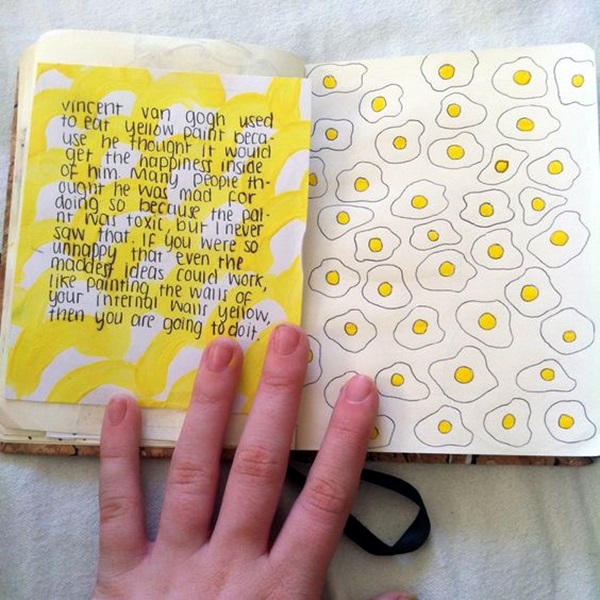 vincent van gogh used
to eat yellow paint beca-
use he thought it would
get the happiness inside
of him. Many people th-
ought he was mad for
doing so because the pai-
nt was toxic, but I never
saw that. If you were so
unhappy that even the
maddest ideas could work,
like painting the walls of
your internal walls yellow,
then you are going to do it.